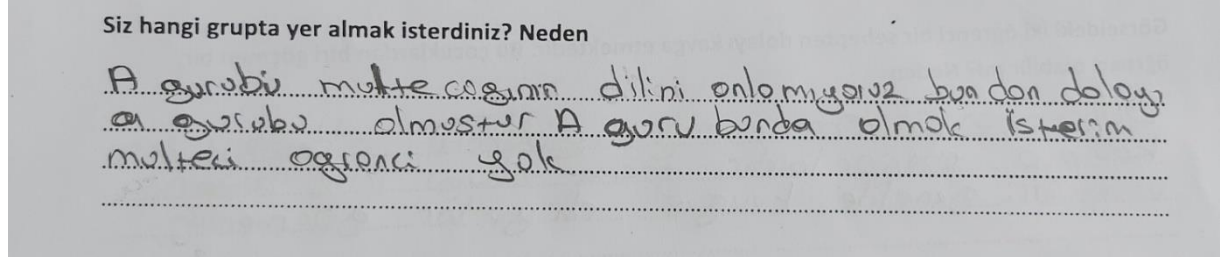 Siz hangi grupta yer almak isterdiniz? Neden
A gurubu multecoginin dilini onlomıyoruz bundon doloyı
a gurubu olmustur A guru bunda olmok isterim
multeci ogrenci yok